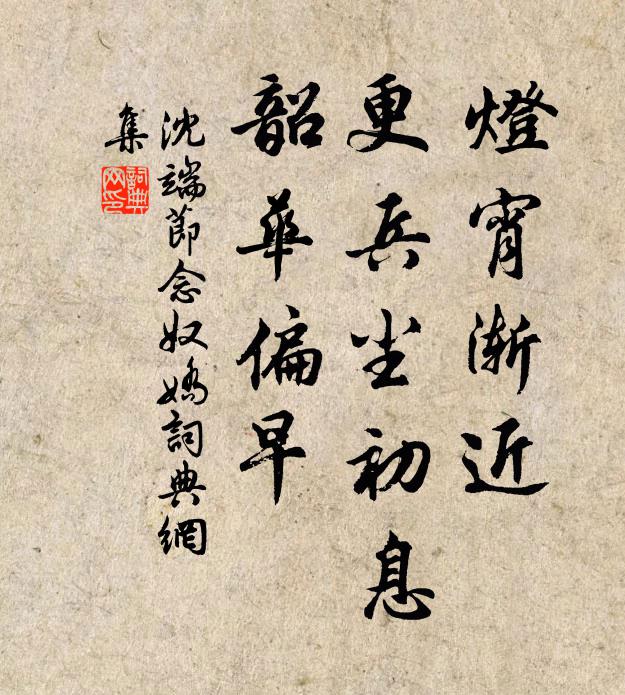 燈宵漸近
更兵尘初息
韶華偏早
沈端節念奴嬌詞典網
集
詞典
网印